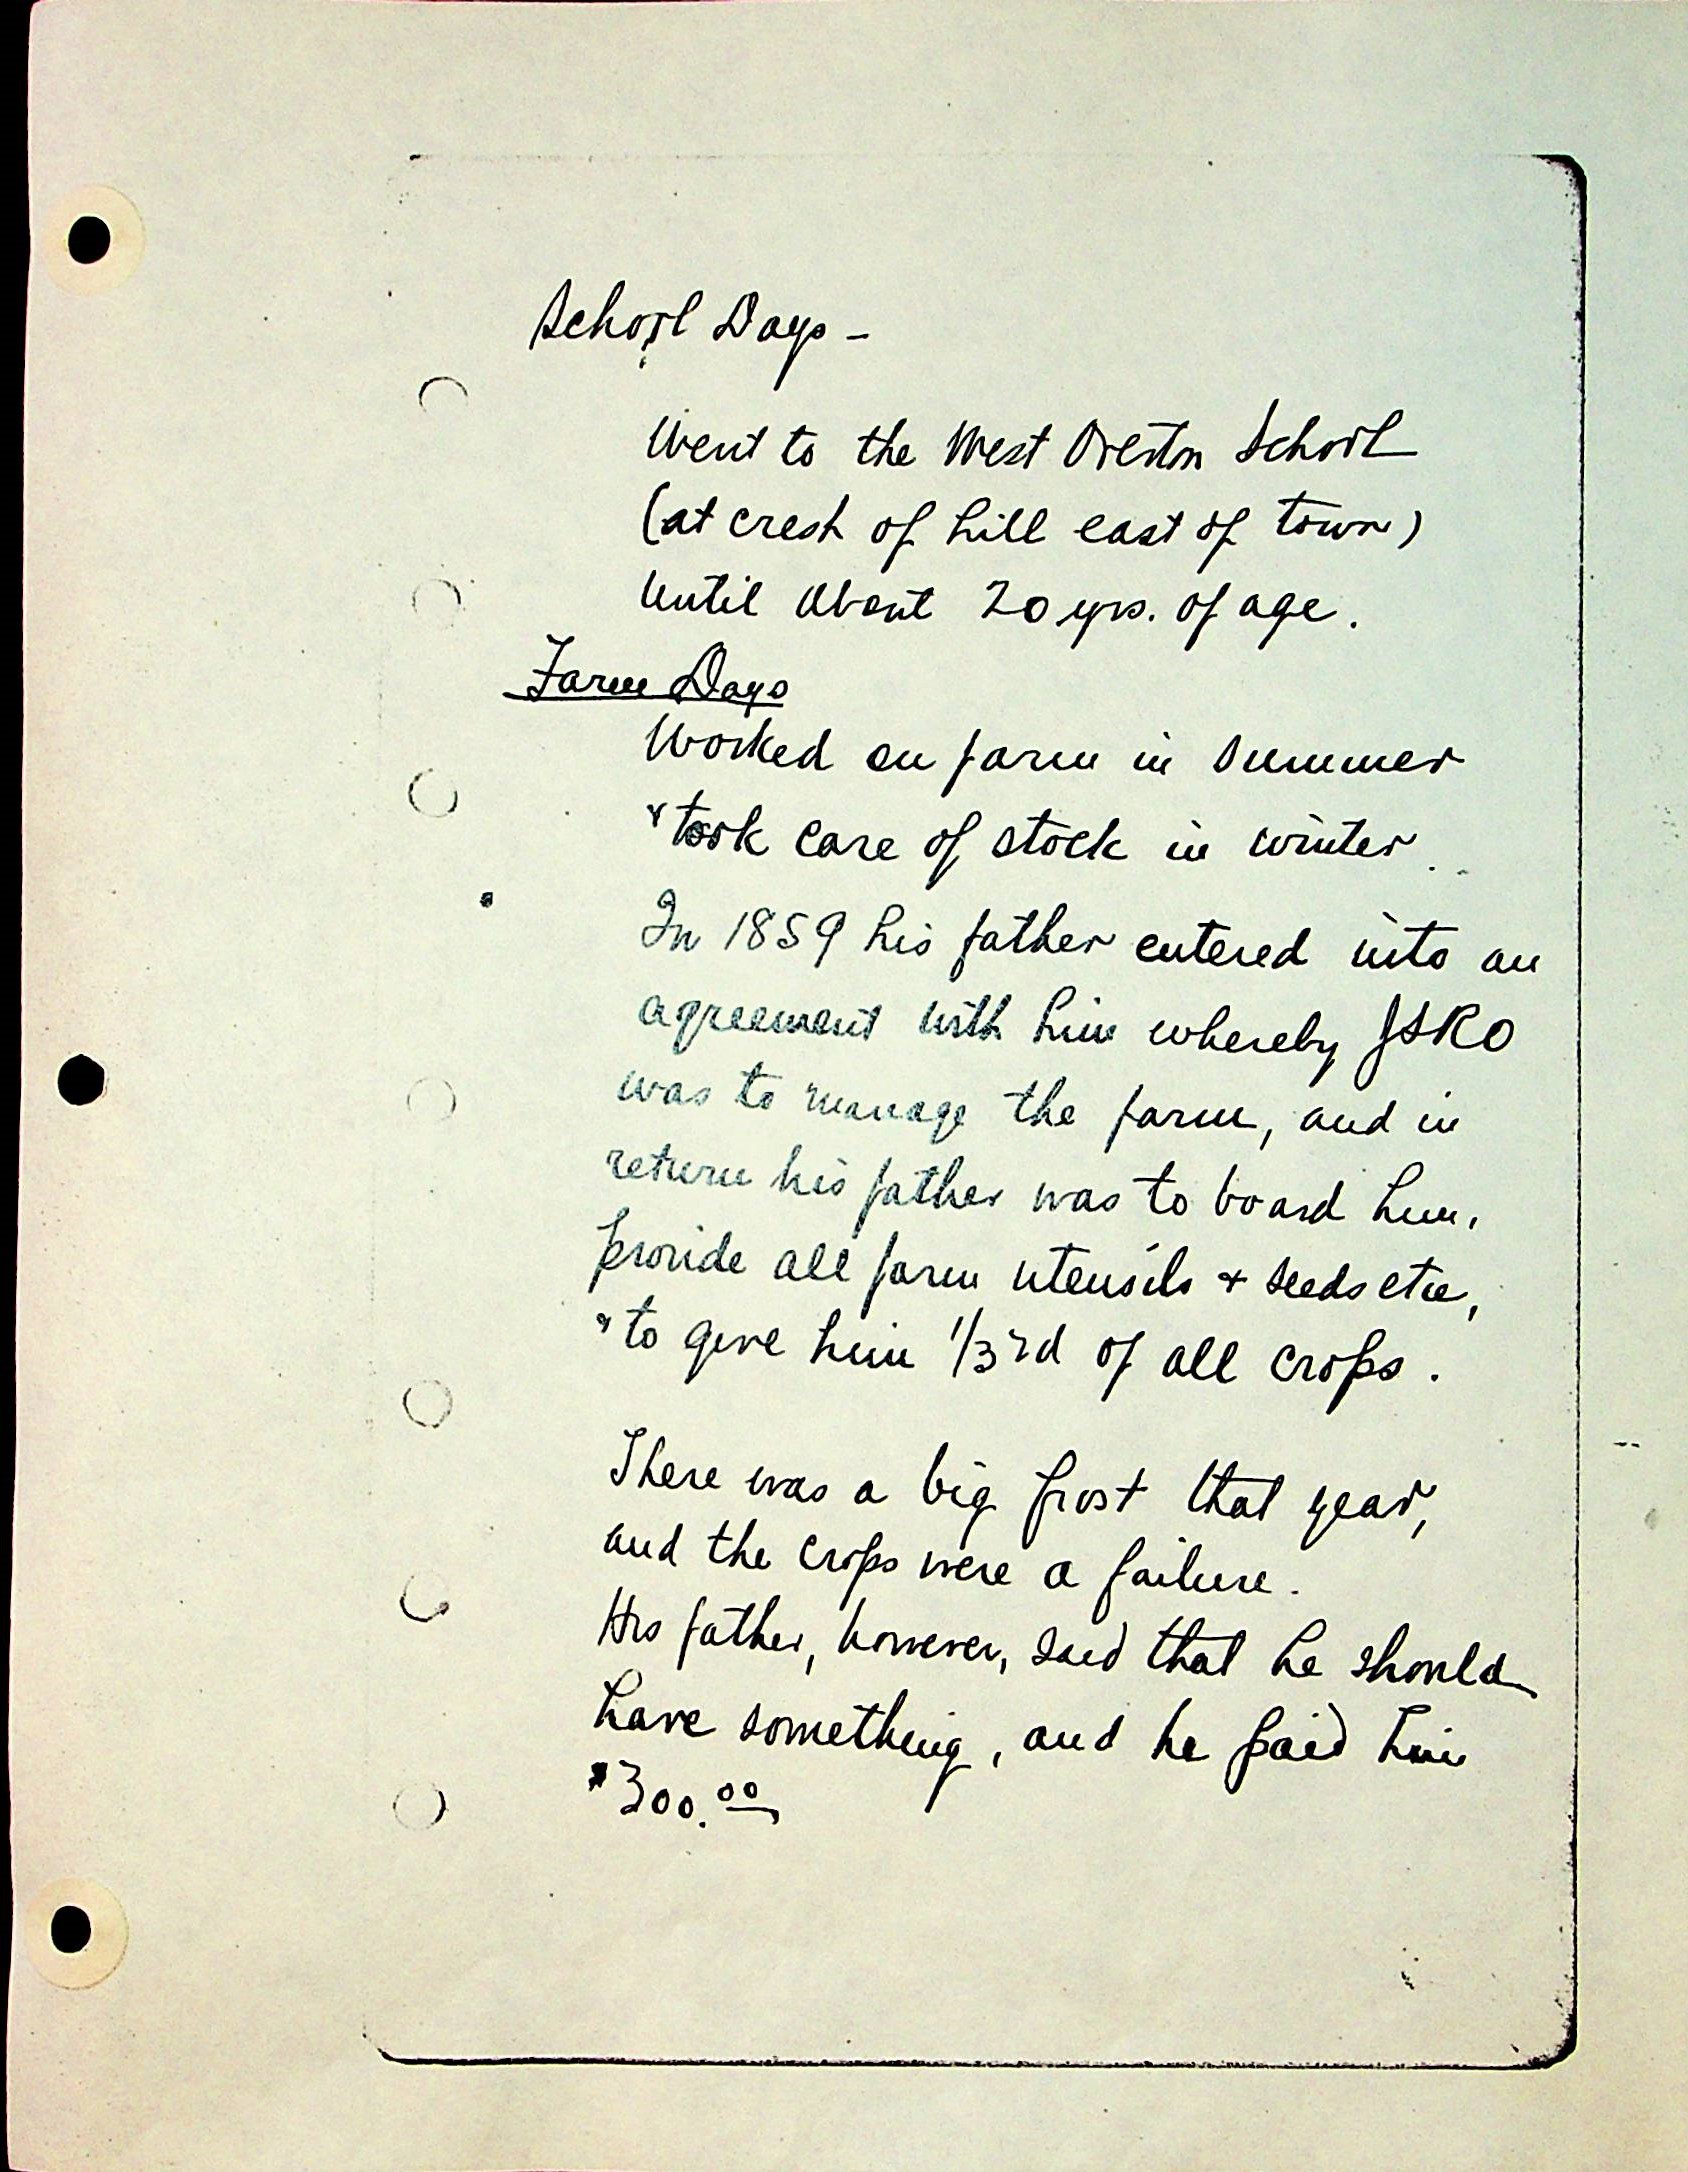 School Days -
Went to the West Oreston School
(at crest of hill east of town)
until about 20 yrs. of age.
Farm Days
Worked on farm in summer
& took care of stock in winter
In 1859 his father entered into an
agreement with him whereby JSRO
was to manage the farm, and in
return his father was to board him,
provide all farm utensils + seeds etc,
& to give him 1/3rd of all crops.
There was a big frost that year,
and the crops were a failure.
His father, however, said that he should
have something, and he paid him
$300.00